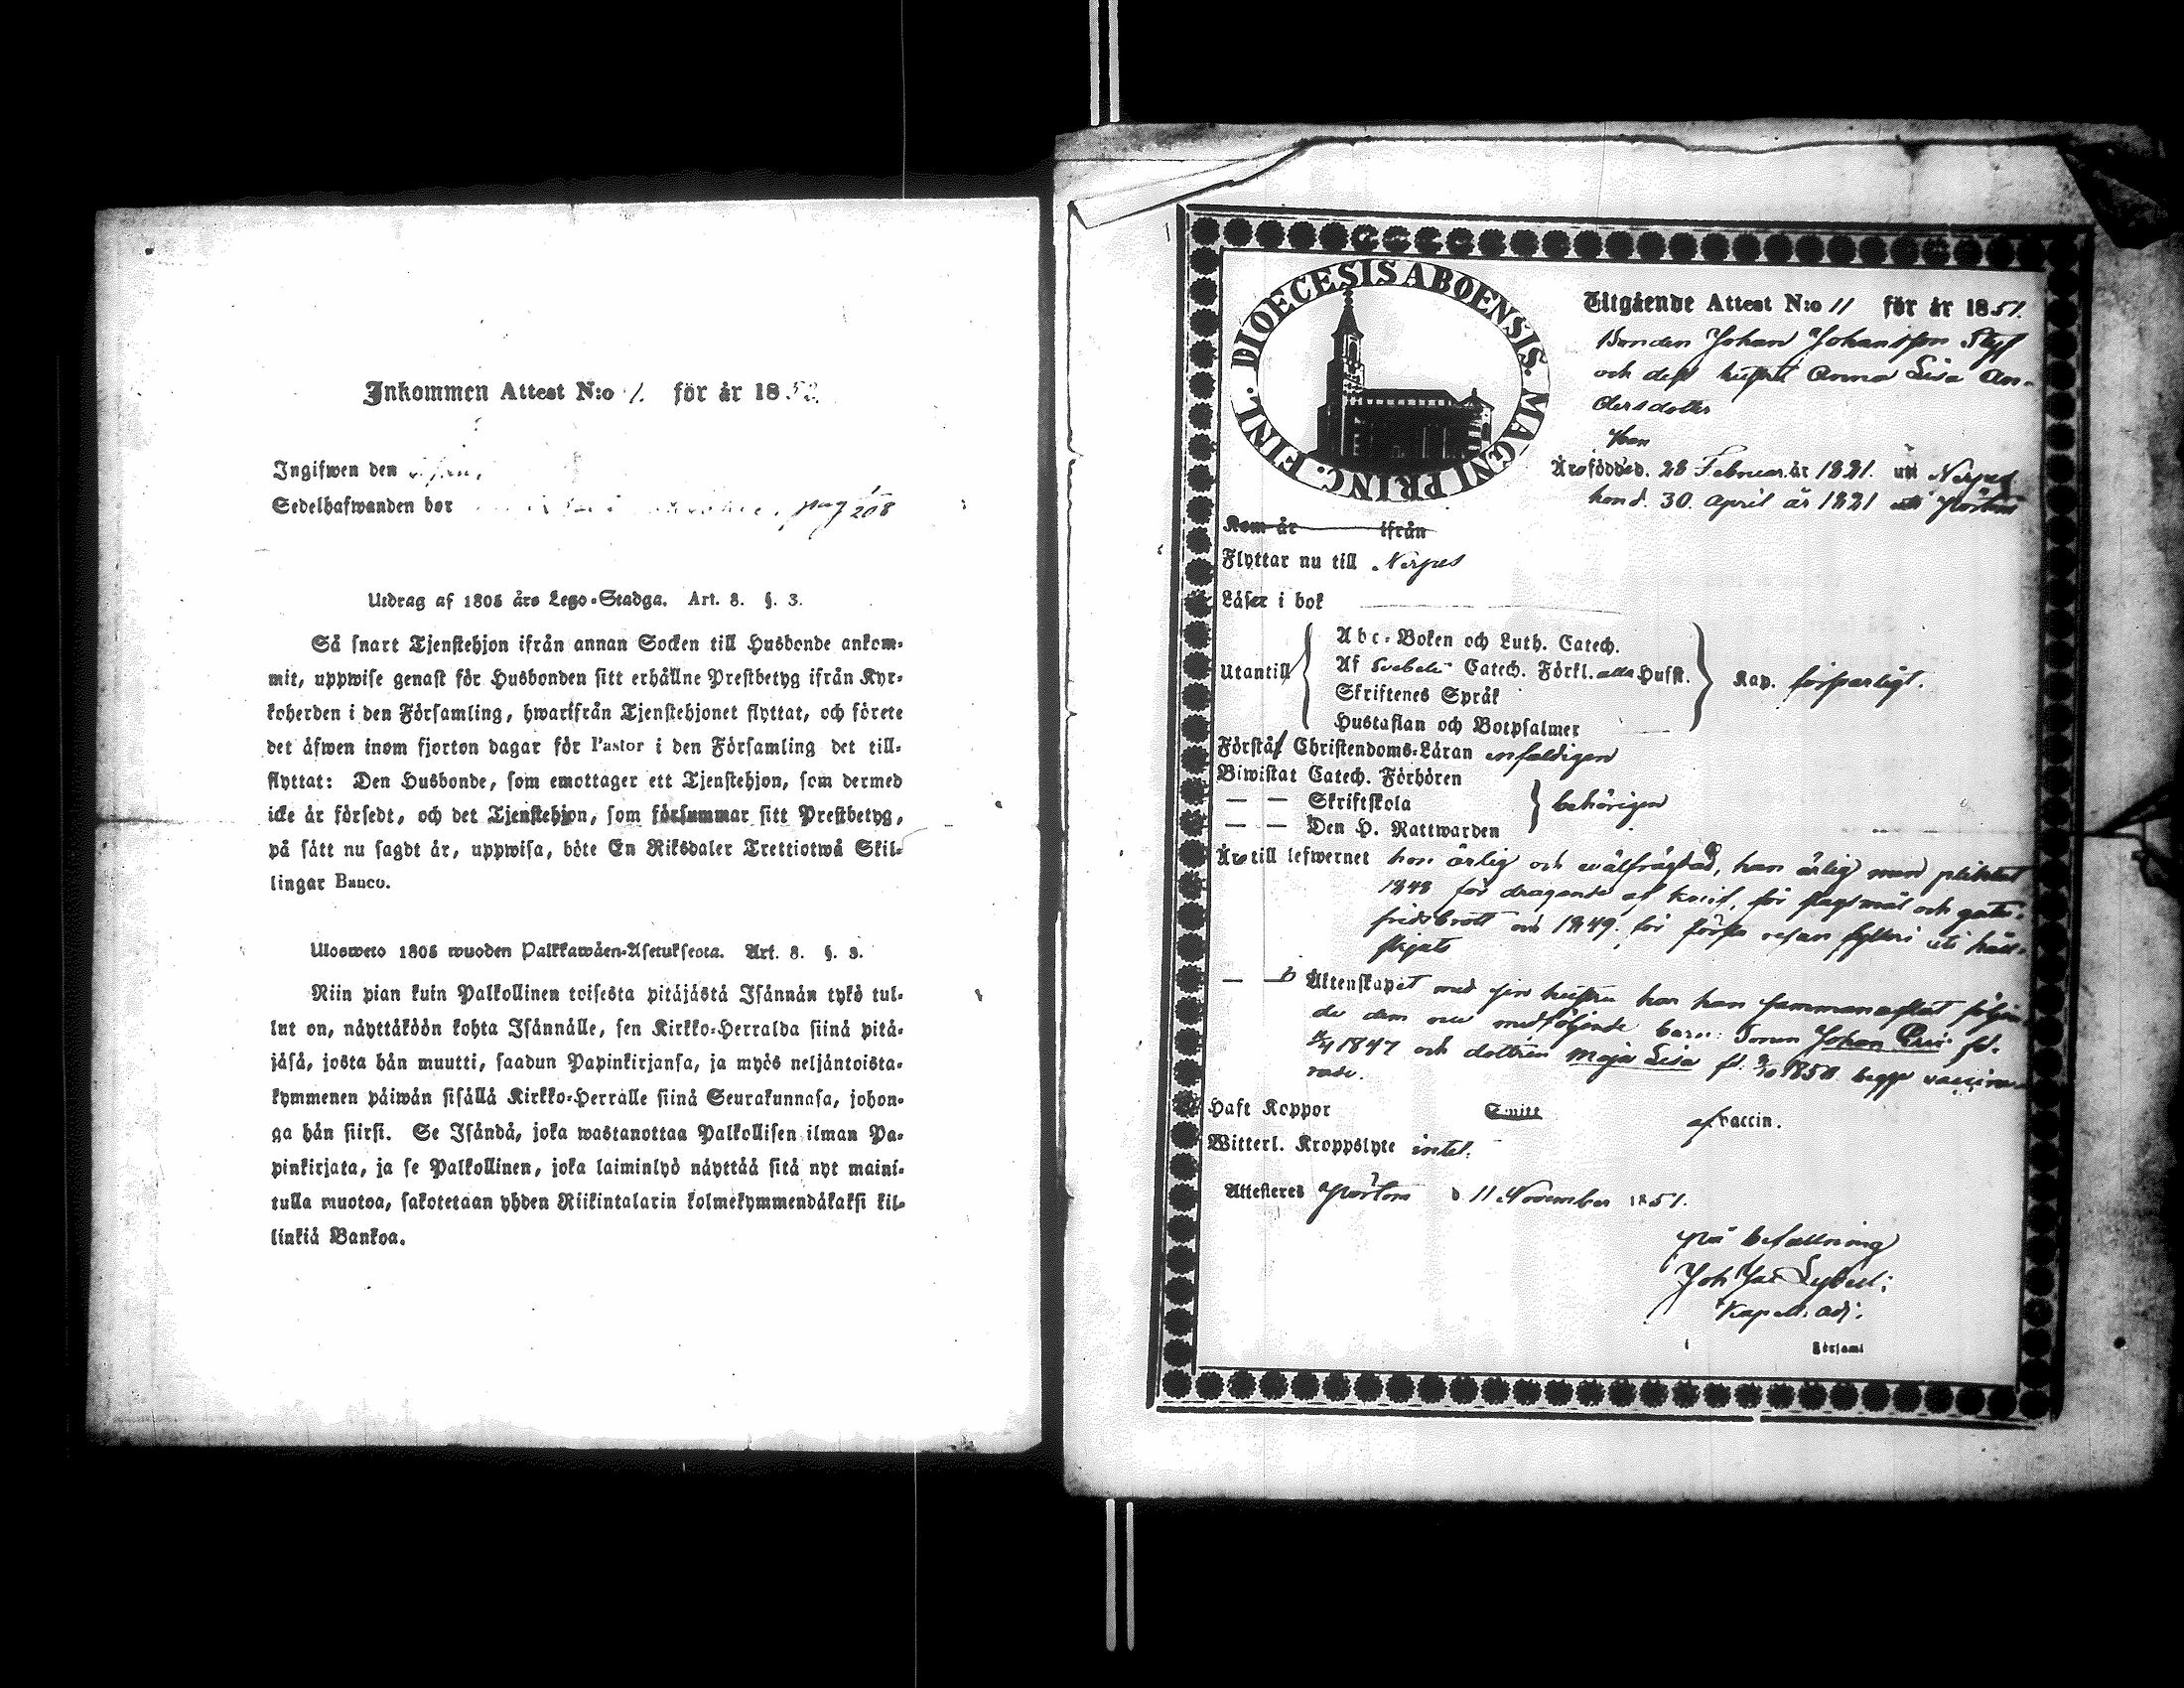 Inkommen Attest N:o 1. för år 1852.
Ingifwen den
Sedelhafwanden bor pag 208
Utdrag af 1805 års Lego-Stadga. Art. 8. §. 3.
Så snart Tjenstehjon ifrån annan Socken till Husbonde ankom-
mit, uppwise genast för Husbonden sitt erhållne Prestbetyg ifrån Kyr-
koherden i den Församling, hwarifrån Tjenstehjonet flyttat, och förete
det äfwen inom fjorton dagar för Pastor i den Församling det till-
flyttat: Den Husbonde, som emottager ett Tjenstehjon, som dermed
icke är försedt, och det Tjenstehjon, som försummar sitt Prestbetyg,
på sätt nu sagdt är, uppwisa, böte En Riksdaler Trettiotwå Skil-
lingar Banco.
Ulosweto 1805 wuoden Palkkawäen-Asetuksesta. Art. 8. §. 3.
Niin pian kuin Palkollinen toisesta pitäjästä Isännän tykö tul-
lut on, näyttäköön kohta Isännälle, sen Kirkko-Herralda siinä pitä-
jäsä, josta hän muutti, saadun Papinkirjansa, ja myös neljäntoista-
kymmenen päiwän sisällä Kirkko-Herralle siinä Seurakunnasa, johon-
ga hän siirsi. Se Isändä, joka wastanottaa Palkollisen ilman Pa-
pinkirjata, ja se Palkollinen, joka laiminlyö näyttää sitä nyt maini-
tulla muotoa, sakotetaan yhden Riikintalarin kolmekymmendäkaksi kil-
linkiä Bankoa.
DIOECESIS ABOENSIS. MAGNI PRINC. FINL.
Utgående Attest N:o 11 för år 1851.
Bonden Johan Johansson Styf
och dess hustru Anna Lisa An-
dersdotter
han
Äro födde d. 28 Februar. år 1821. uti Nerpes
hon d. 30. April år 1821 uti Pörtom
Kom år ifrån
Flyttar nu till Nerpes
Läser i bok
Utantill
Abc-Boken och Luth. Catech.
Af Svebelii Catech. Förkl. alla Hufst.
Skriftenes Språk
Hustaflan och Botpsalmer
Kap. försvarligt.
Förstå Christendoms-Läran enfaldigen
Biwistat Catech. Förhören
— — Skriftskola
— — Den H. Nattwarden
behörigen
Äro till lefwernet hon ärlig och wälfrägdad, han ärlig men pliktat
1848 för dragande af knif, för slagsmål och gatu-
fridsbrott och 1849. för första resan fylleri uti håll-
skjuts
— — Äktenskapet med sin hustru har han sammanaflat följan-
de dem nu medföljande barn: Sonen Johan Eric fd.
1847 och dottren Maja Lisa fd. 1850 begge vaccine-
rade.
Haft Koppor Smitt af vaccin.
Witterl. Kroppslyte intet.
Attesteres Pörtom d. 11 November 1851.
På befallning
Joh Jac Lybeck:
Kapell: adj.
Församl